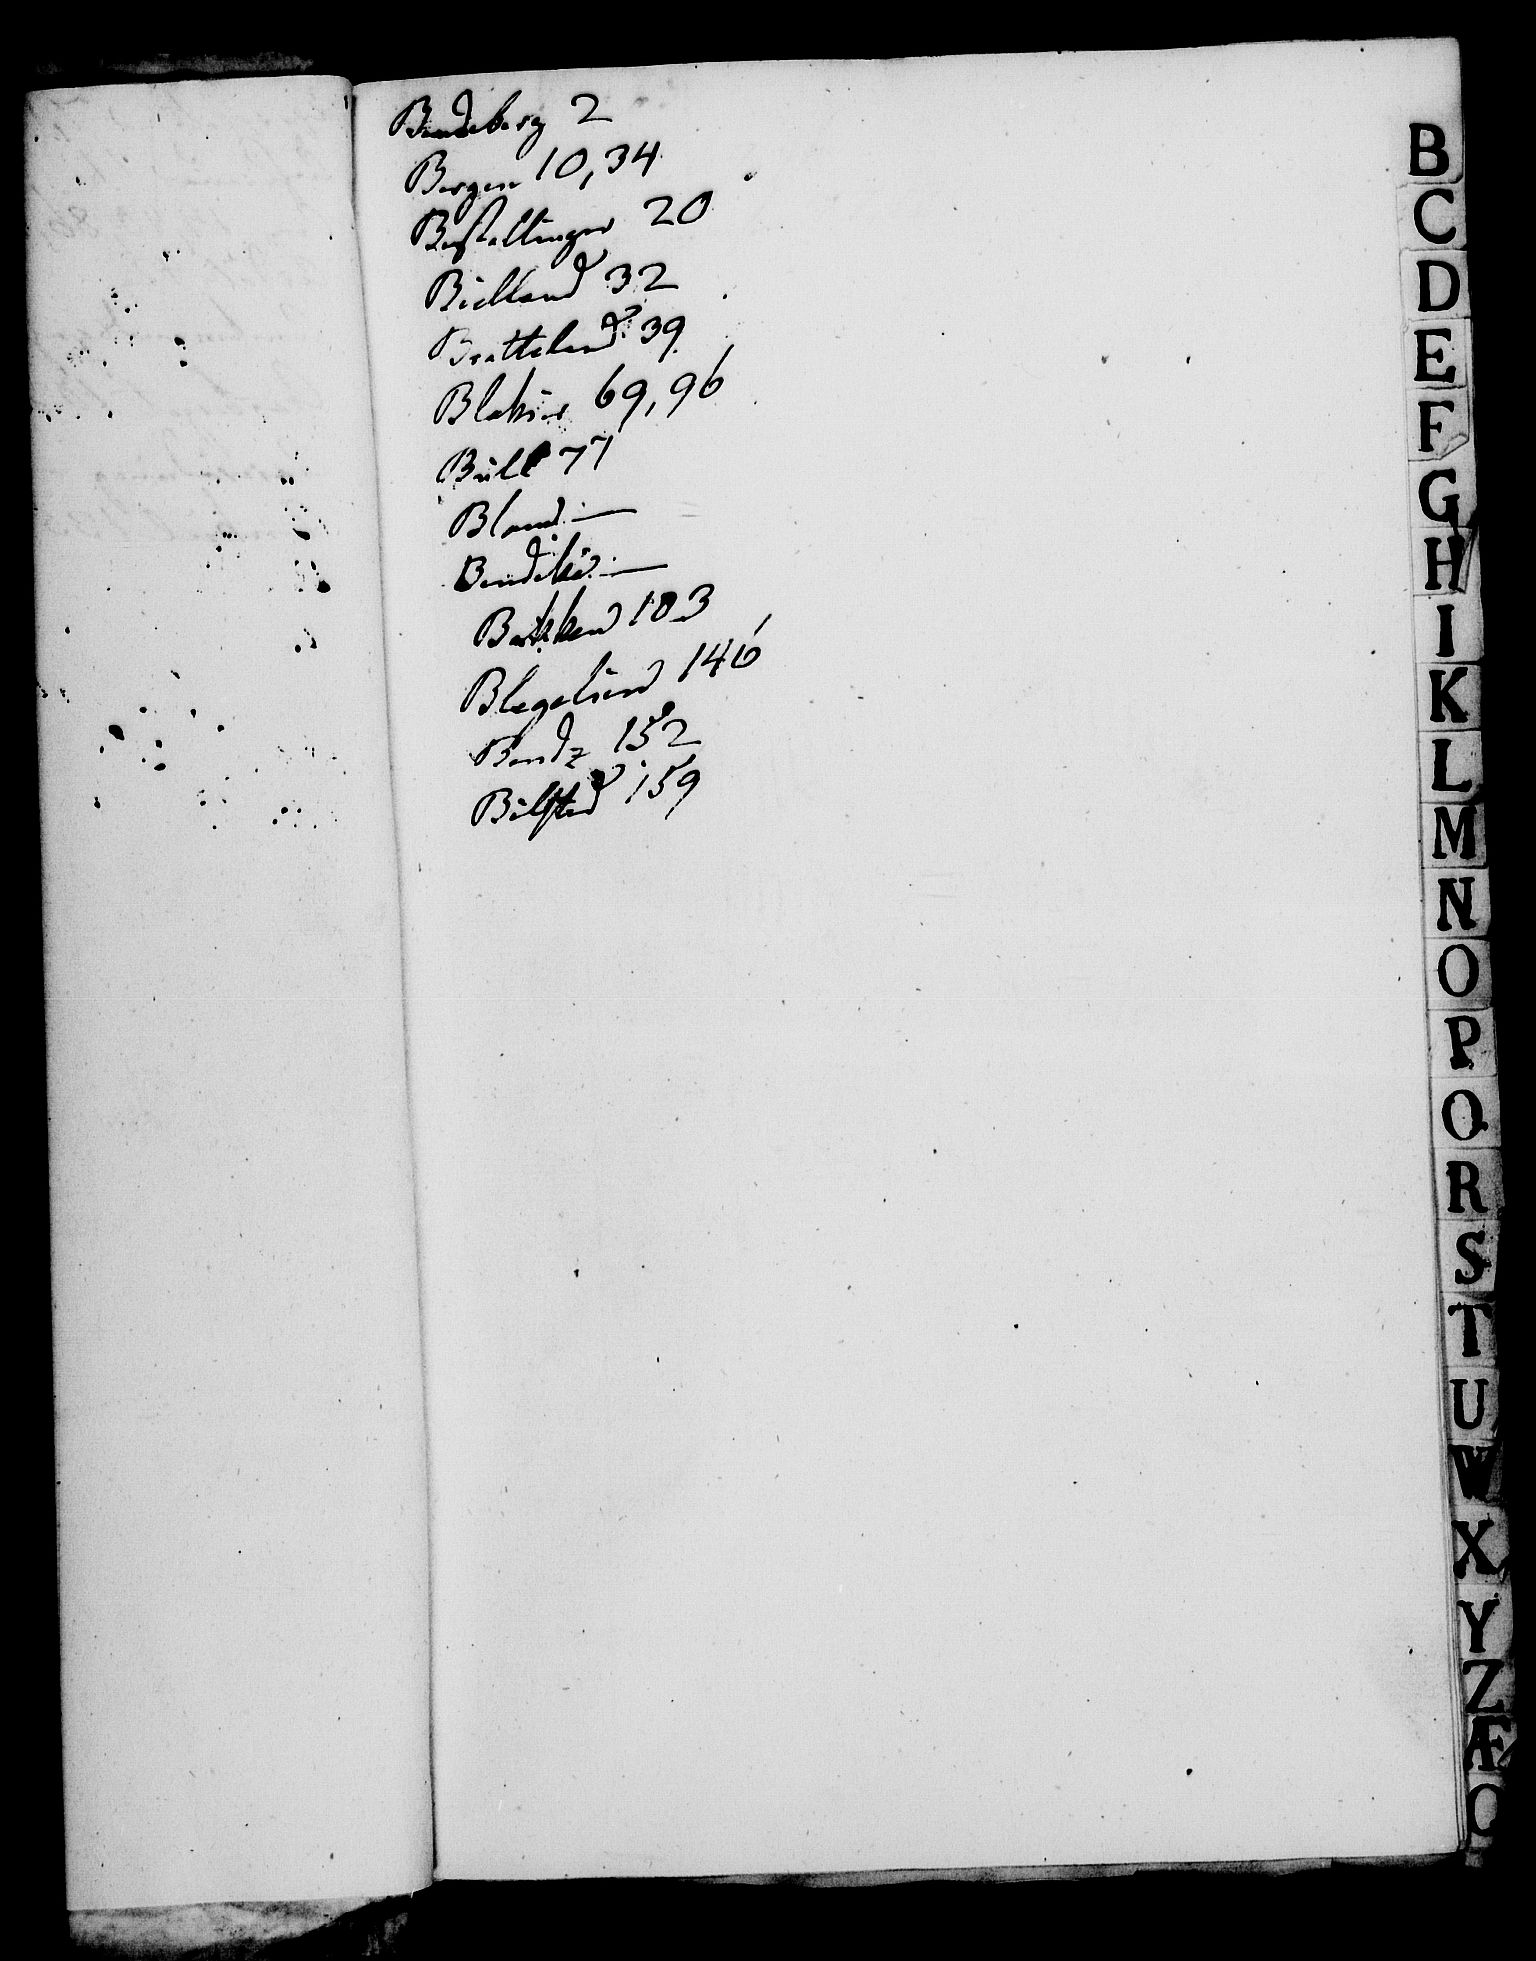 Bendeberg 2
Bergen 10, 34
Bestallinger 20
Bielland 32
Bratteland 39
Blakier 69, 96
Büll 77
Bland —
Bendeke —
Bakken 103
Blegelsend 146
Bendz 152
Bilsted 159
B
C
D
E
F
G
H
I
K
L
M
N
O
P
Q
R
S
T
U
W
X
Y
Z
Æ